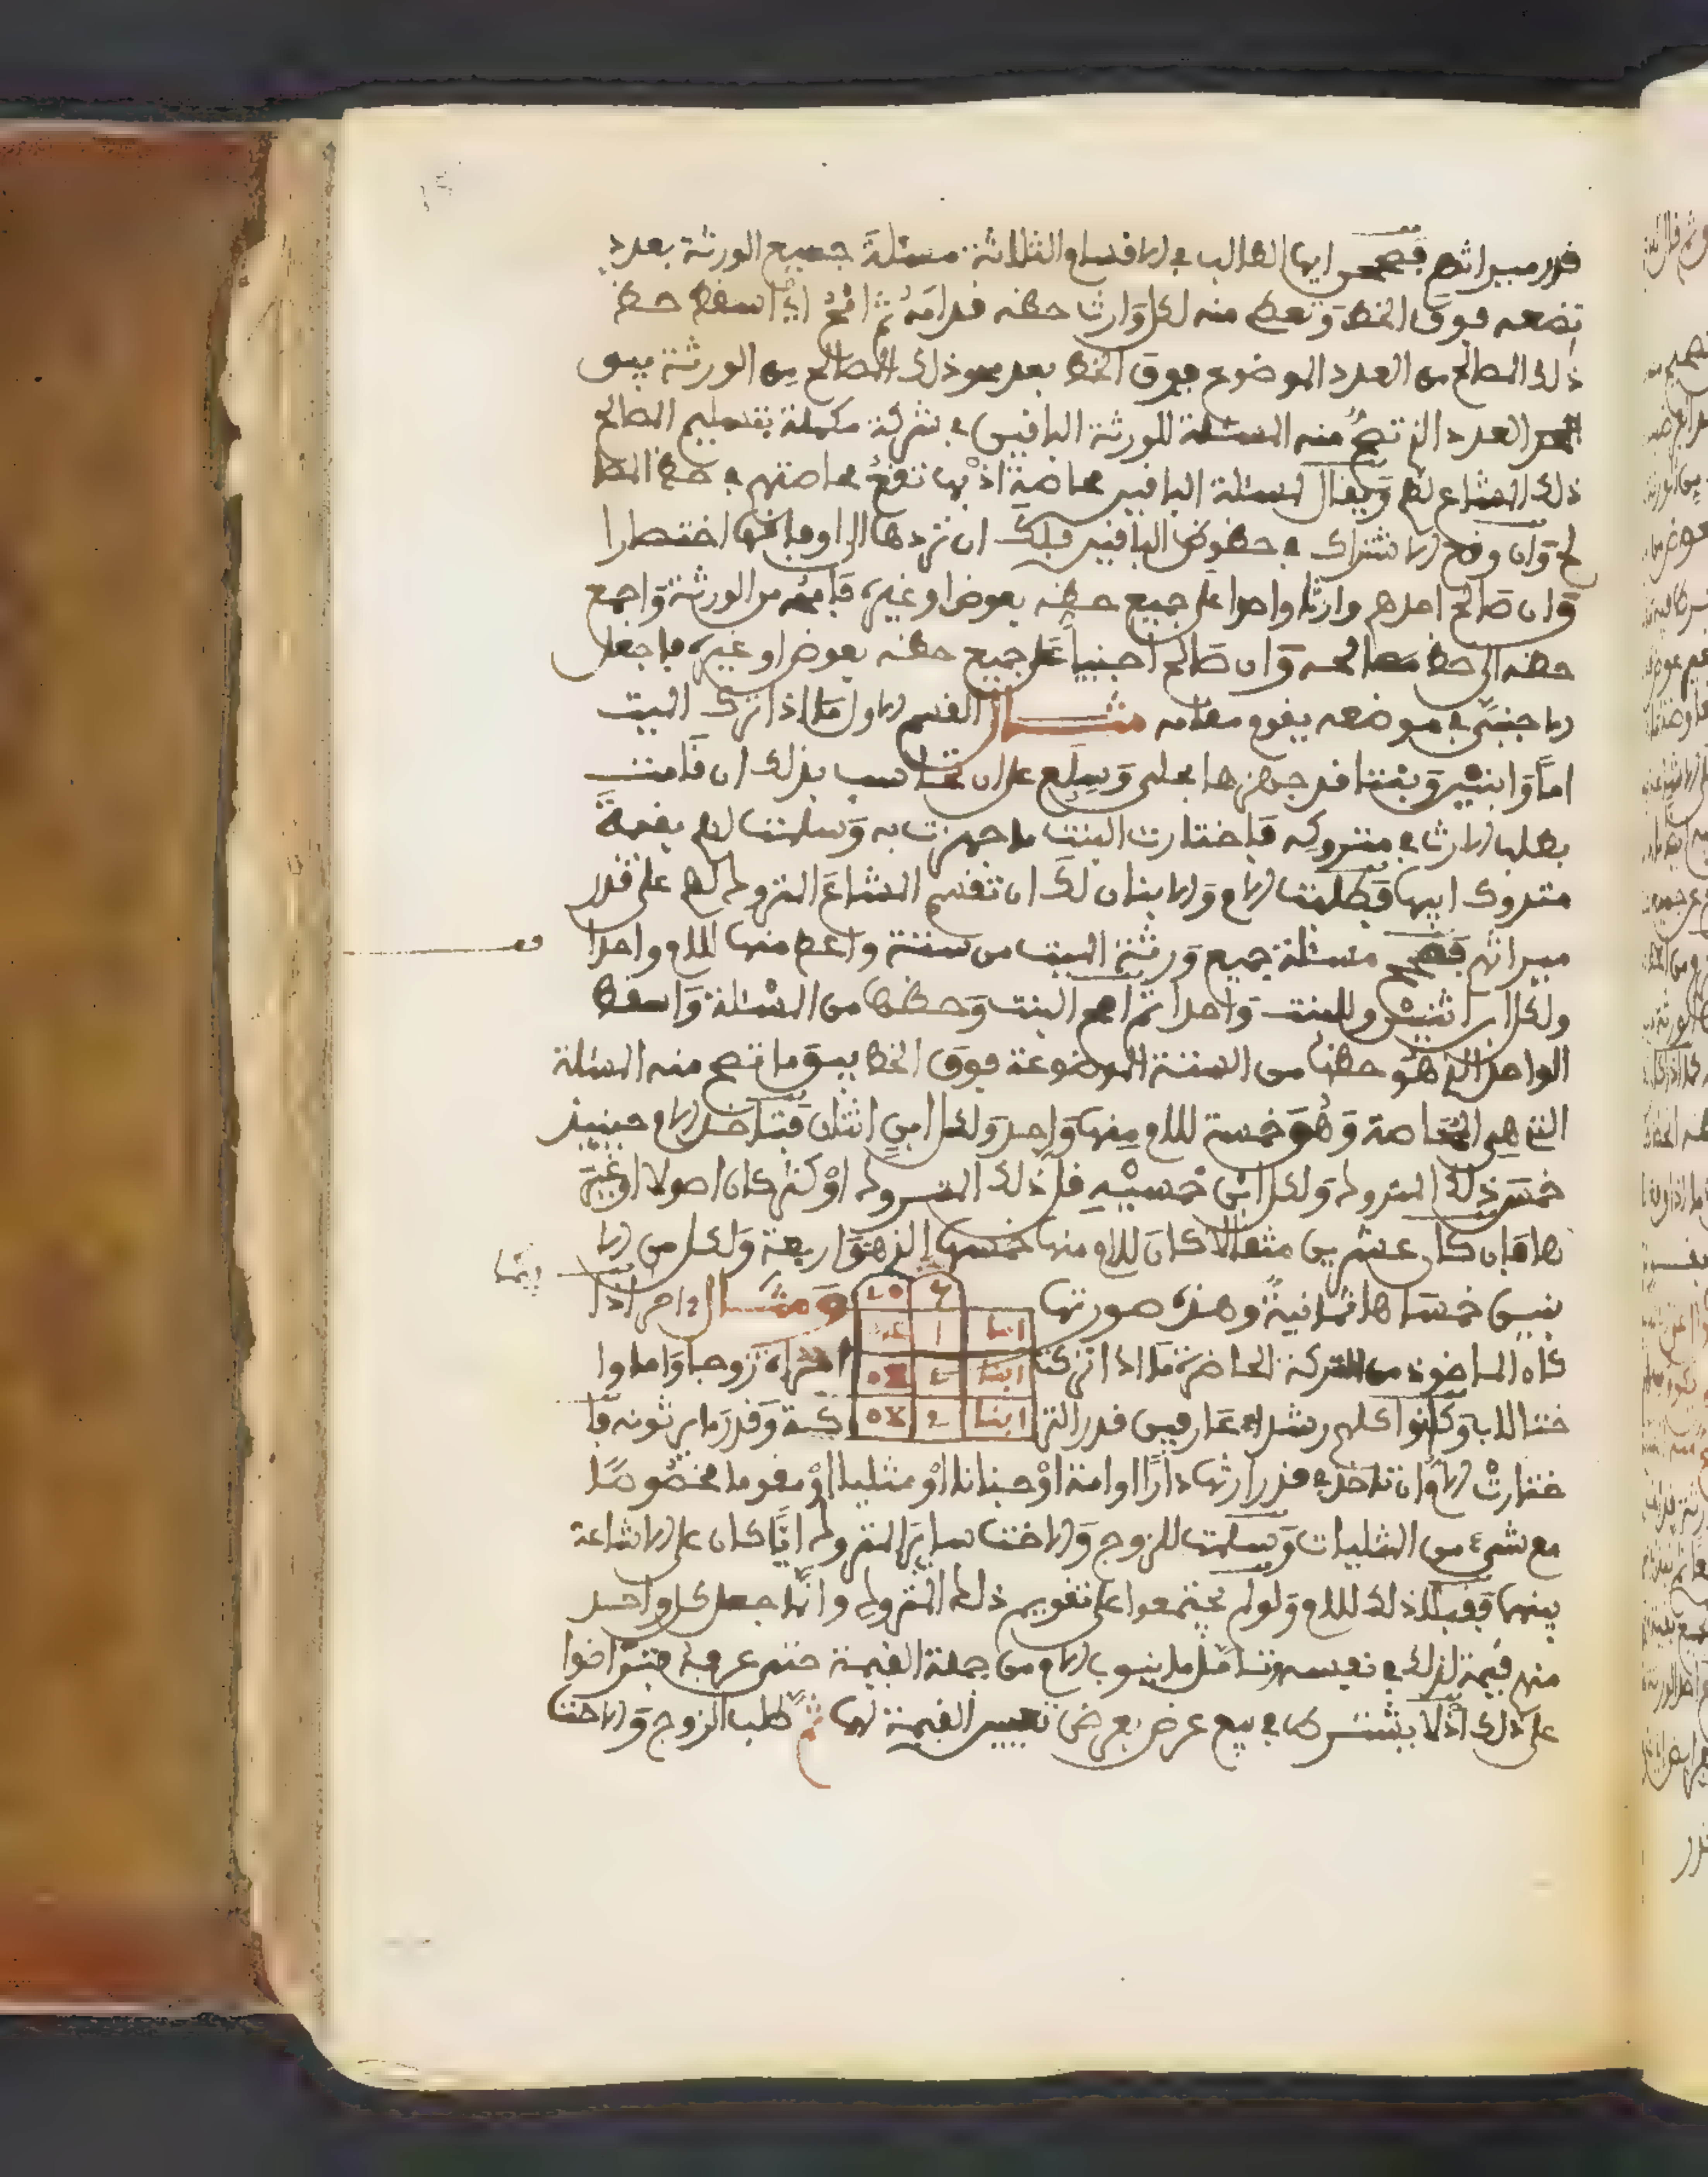 قدر ميراثهم فصحح ايها الطالب في الاقسام الثلاثة مسئلة جميع الورثة بعدد
تضعه فوق الخط وتعطي منه لكل وارث حظه قدامه ثم امح اي اسقط حظ
ذلك المصالح من العدد الموضوع فوق الخط بعد محو ذلك المصالح من الورثة يبقى
العدد الذي تصح منه المسئلة للورثة الباقين في شركة مكملة بتسليم المصالح
ذلك المشاع لهم ويقال لمسئلة الباقين محاصة اذ بها تقع محاصتهم في حظ المصا
لح وان وقع الاشتراك في حظوظ الباقين فلك ان تردها الى اوفاقها اختصارا
وان صالح احدهم وارثا واحدا على جميع حظه بعوض او غيره فامحه من الورثة واجمع
حظه الى حظ مصالحه وان صالح اجنبيا على جميع حظه بعوض او غيره فاجعل
الاجنبي في موضعه يقوم مقامه مثال القسم الاول ما اذا ترك الميت
اما وابنين وبنتا قد جهزها بحلى وسلع على ان تحاسب بذلك ان قامت
بطلب الارث في متروكه فاختارت البنت ما جهزت به وسلمت لهم بقية
متروك ابيها فطلبت الام والابنان لك ان تقسم المشاع المتروك لهم على قدر
ميراثهم فصحح مسئلة جميع ورثة الميت من ستة واعط منها للام واحدا
ولكل ابن اثنين وللبنت واحدا ثم امح البنت وحظها من المسئلة واسقط
الواحد الذي هو حظها من الستة الموضوعة فوق الخط يبق ما تصح منه المسئلة
التي هي المحاصة وهو خمسة للام منها واحد ولكل ابن اثنان فتاخذ الام حينئذ
خمس ذلك المتروك ولكل ابن خمسيه قل ذلك المتروك او كثر كان اصولا او غير
ها فان كان عشرين مثقالا كان للام منها خمسها الذي هو اربعة ولكل من الا
بنين خمساها ثمانية وهذه صورتها ومثال ما اذا
كان الماخوذ من التركة الحاضرة ما اذا تركت امراة زوجا واما وا
ختا للاب وكانوا كلهم رشداء عارفين قدر التركة وقدر ما يرثونه فا
ختارت الام ان تاخذ في قدر ارثها دارا او امة او جنانا او مثليا او مقوما مخصوصا
مع شيء من المثليات وسلمت للزوج والاخت سائر المتروك ايا كان على الاشاعة
بينهما فقبلا ذلك للام ولو لم يجتمعوا على تقويم ذلك المتروك وانما جعل كل واحد
منهم قيمة لذلك في نفسه وتامل ما ينوب الام من جملة القيمة حتى عرفه فتراضوا
على ذلك اذ لا يشترط في بيع عرض بعرض تعيين القيمة لهما ثم طلب الزوج والاخت